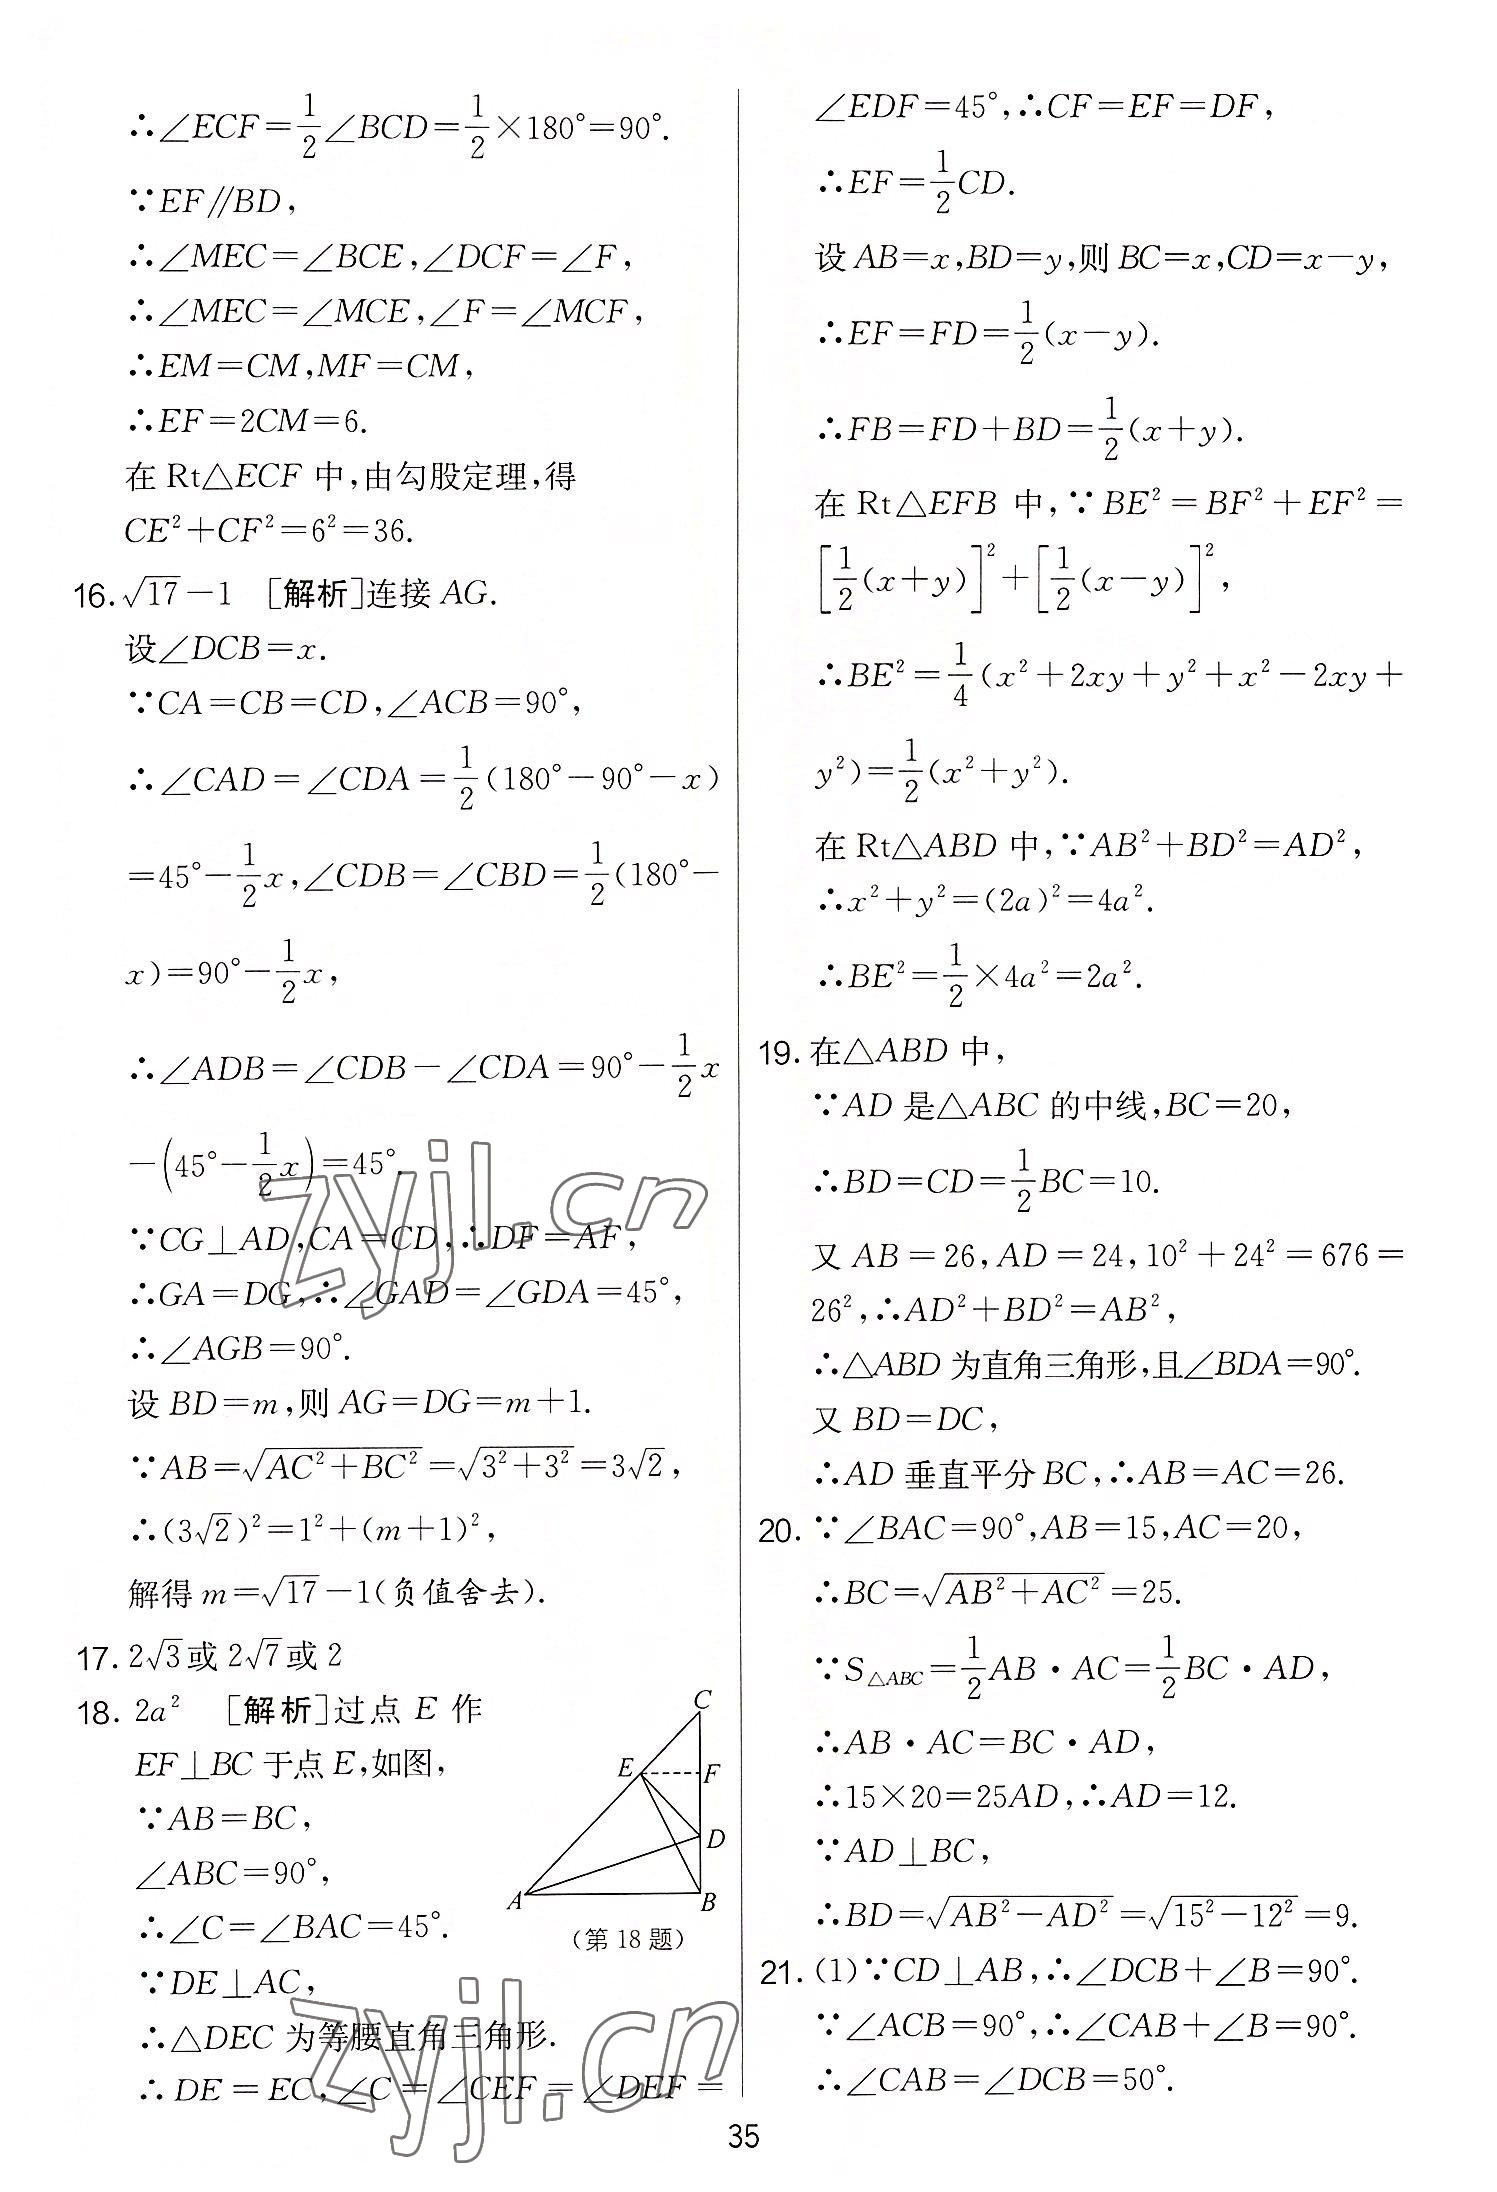 ∴∠ECF=1/2∠BCD=1/2×180°=90°.
∵EF∥BD,
∴∠MEC=∠BCE,∠DCF=∠F,
∴∠MEC=∠MCE,∠F=∠MCF,
∴EM=CM,MF=CM,
∴EF=2CM=6.
在 Rt△ECF 中,由勾股定理,得
CE²+CF²=6²=36.
16. √17-1 [解析]连接 AG.
设∠DCB=x.
∵CA=CB=CD,∠ACB=90°,
∴∠CAD=∠CDA=1/2(180°-90°-x)
=45°-1/2x,∠CDB=∠CBD=1/2(180°-
x)=90°-1/2x,
∴∠ADB=∠CDB-∠CDA=90°-1/2x
-(45°-1/2x)=45°.
∵CG⊥AD,CA=CD,∴DF=AF,
∴GA=DG,∴∠GAD=∠GDA=45°,
∴∠AGB=90°.
设 BD=m,则 AG=DG=m+1.
∵AB=√(AC²+BC²)=√(3²+3²)=3√2,
∴(3√2)²=1²+(m+1)²,
解得 m=√17-1(负值舍去).
17. 2√3或 2√7或 2
18. 2a² [解析]过点 E 作
EF⊥BC 于点 E,如图,
∵AB=BC,
∠ABC=90°,
∴∠C=∠BAC=45°.
∵DE⊥AC,
∴△DEC 为等腰直角三角形.
∴DE=EC,∠C=∠CEF=∠DEF=
C
E
F
D
A
B
(第 18 题)
∠EDF=45°,∴CF=EF=DF,
∴EF=1/2CD.
设 AB=x,BD=y,则 BC=x,CD=x-y,
∴EF=FD=1/2(x-y).
∴FB=FD+BD=1/2(x+y).
在 Rt△EFB 中,∵BE²=BF²+EF²=
[1/2(x+y)]²+[1/2(x-y)]²,
∴BE²=1/4(x²+2xy+y²+x²-2xy+
y²)=1/2(x²+y²).
在 Rt△ABD 中,∵AB²+BD²=AD²,
∴x²+y²=(2a)²=4a².
∴BE²=1/2×4a²=2a².
19. 在△ABD 中,
∵AD 是△ABC 的中线,BC=20,
∴BD=CD=1/2BC=10.
又 AB=26,AD=24,10²+24²=676=
26²,∴AD²+BD²=AB²,
∴△ABD 为直角三角形,且∠BDA=90°.
又 BD=DC,
∴AD 垂直平分 BC,∴AB=AC=26.
20. ∵∠BAC=90°,AB=15,AC=20,
∴BC=√(AB²+AC²)=25.
∵S△ABC=1/2AB·AC=1/2BC·AD,
∴AB·AC=BC·AD,
∴15×20=25AD,∴AD=12.
∵AD⊥BC,
∴BD=√(AB²-AD²)=√(15²-12²)=9.
21. (1)∵CD⊥AB,∴∠DCB+∠B=90°.
∵∠ACB=90°,∴∠CAB+∠B=90°.
∴∠CAB=∠DCB=50°.
35
zyjl.cn
zyjl.cn